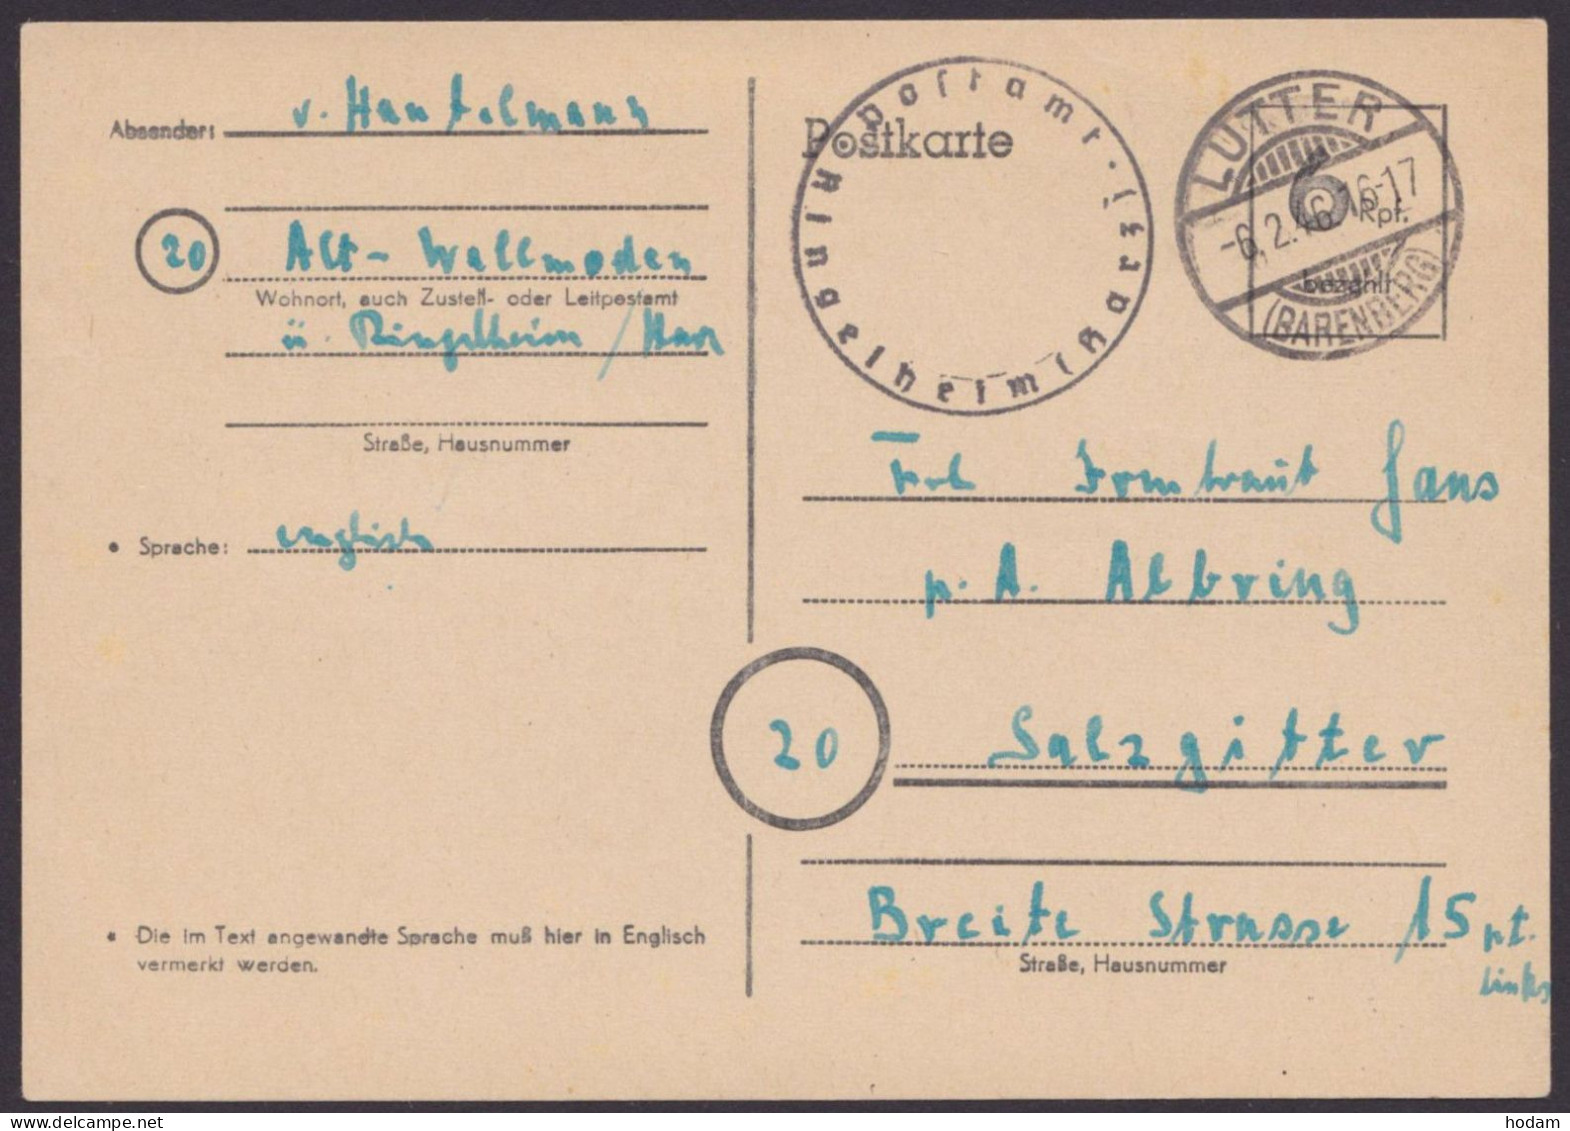 Absender: v. Hantelmann
20 Alt-Wallmoden
Wohnort, auch Zustell- oder Leitpostamt
ü. Ringelheim / Harz
Straße, Hausnummer
• Sprache: englisch
• Die im Text angewandte Sprache muß hier in Englisch
vermerkt werden.
Postkarte
postamt · Ringelheim (Harz)
LUTTER
-6.2.46.16-17
(BARENBERG)
6
Rpf.
bezahlt
Frl Irmtraut Gans
p. A. Albring
20 Salzgitter
Breite Strasse 15 pt.
links
Straße, Hausnummer
hodam